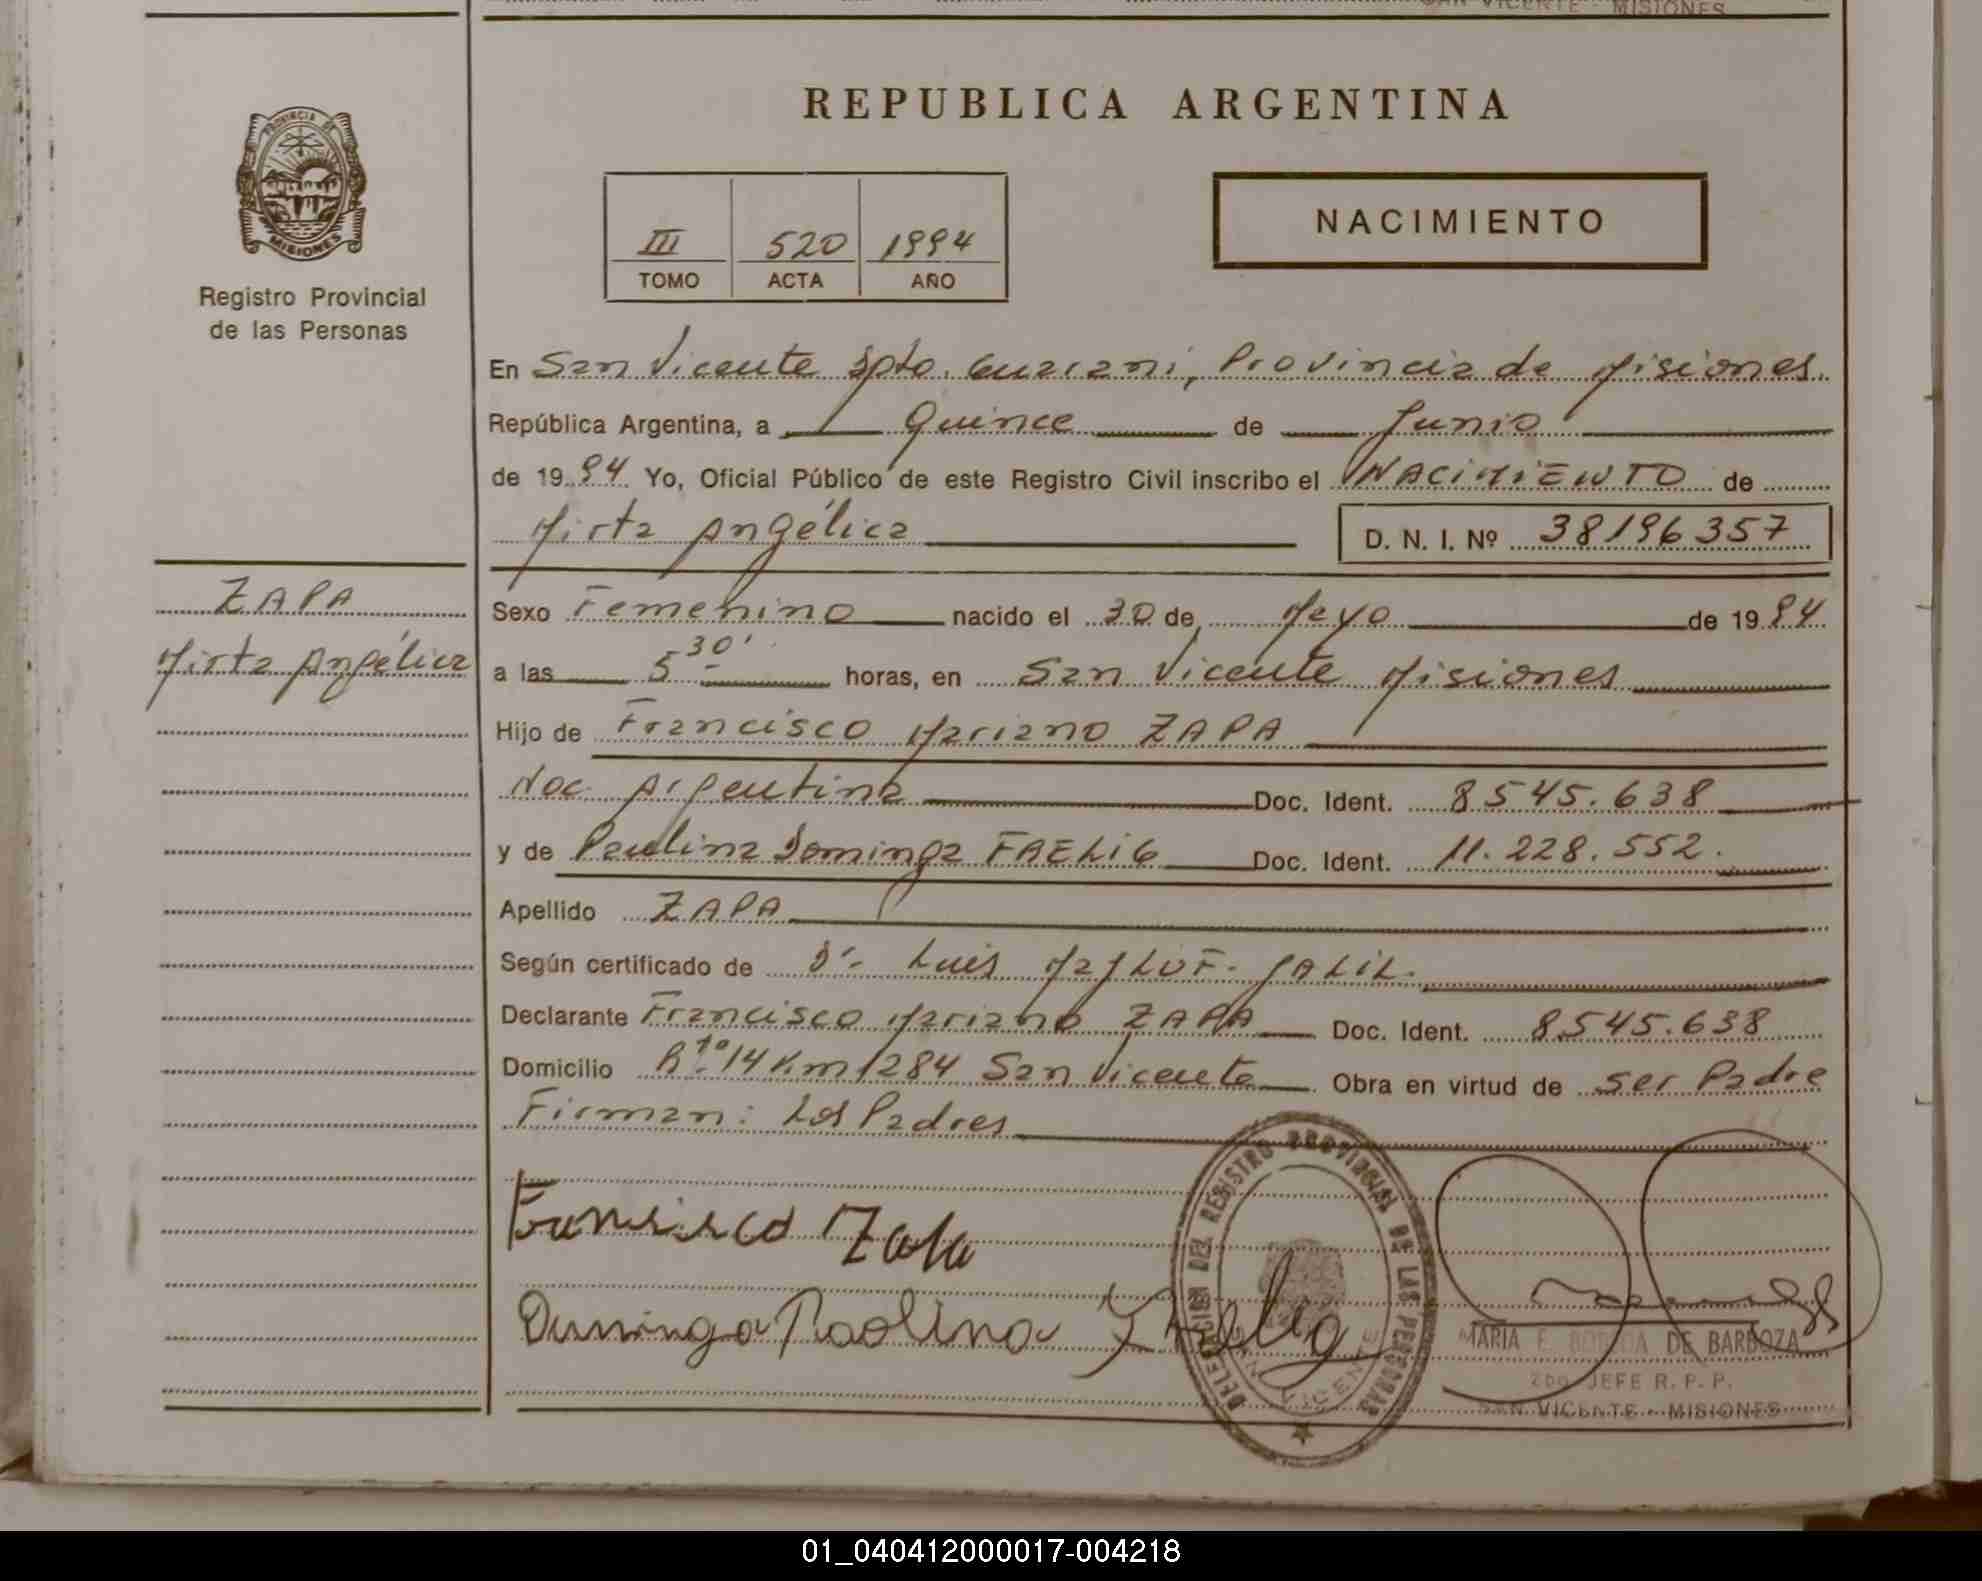 SAN VICENTE MISIONES
REPUBLICA ARGENTINA
PROVINCIA DE
MISIONES
Registro Provincial
de las Personas
III 520 1994
TOMO ACTA AÑO
NACIMIENTO
En San Vicente Dpto. Guarani, Provincia de Misiones.
República Argentina, a Quince de Junio
de 1994 Yo, Oficial Público de este Registro Civil inscribo el NACIMIENTO de
Mirta Angélica D. N. I. Nº 38196357
ZAPA
Mirta Angélica
Sexo Femenino nacido el 30 de Mayo de 1994
a las 5 30' horas, en San Vicente Misiones
Hijo de Francisco Mariano ZAPA
Nac. Argentina Doc. Ident. 8545.638
y de Paulina Dominga Doc. Ident. 11.228.552.
Apellido ZAPA
Según certificado de Dr. Luis
Declarante Francisco Mariano ZAPA Doc. Ident. 8.545.638
Domicilio Rta. 14 Km 1284 San Vicente Obra en virtud de ser Padre
Firman: Los Padres
Francisco Zapa
Duminga Paolina
DELEGACION DEL REGISTRO PROVINCIAL DE LAS PERSONAS
SAN VICENTE
MARIA E. DE BARBOZA
2do JEFE R. P. P.
SAN VICENTE - MISIONES
01_040412000017-004218